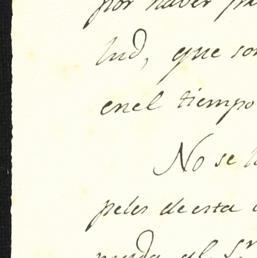 por haver pa
lud, que son
enel tiempo
No se h
peles de esta